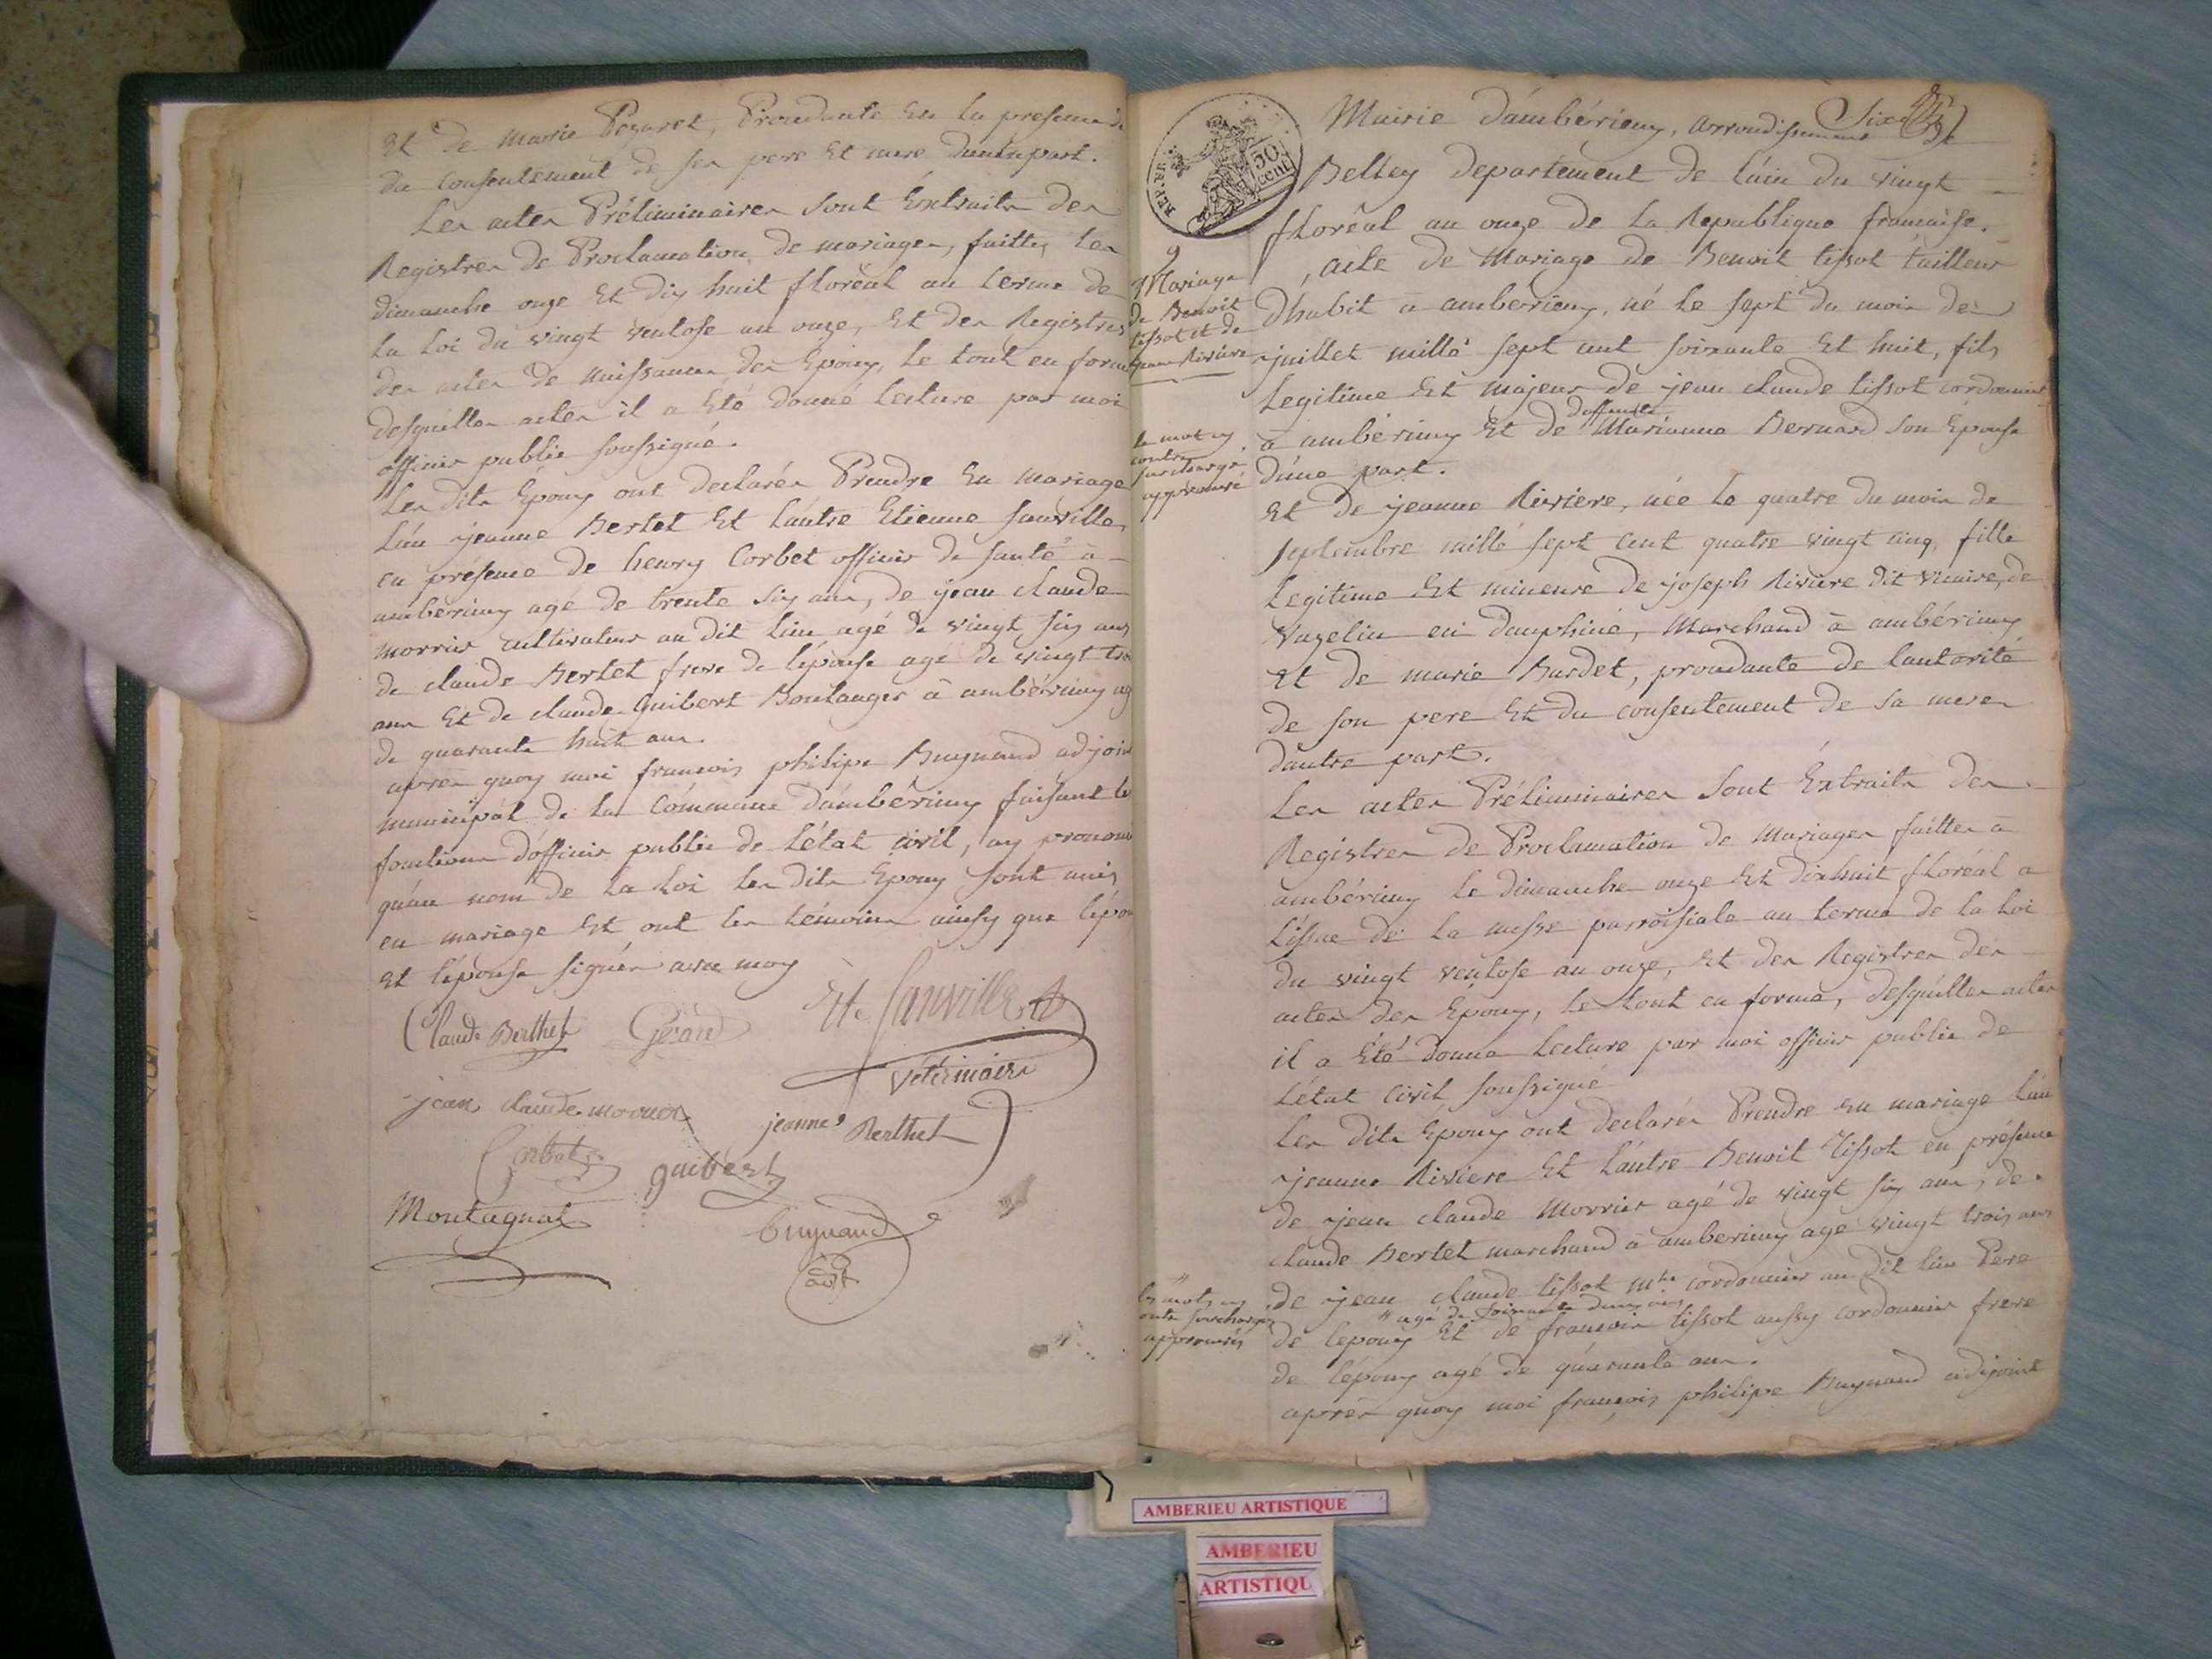 Et de marie Pezaret, Proudante En la presence &
du Consentement de ses pere Et mere dautrepart.
Les actes Préliminaires sont Extraits des
Registres de Proclamation de mariages, faittes les
dimanche onze Et dix huit floréal au terme de
la Loi du vingt ventose an onze, Et des Registres
des actes de naissances des Epoux, le tout en forme
desquelles actes il a Eté donné lecture par moi
officier public soussigné.
Les dits Epoux ont declarés Prendre En mariage
Lun jeanne Bertet Et Lautre Etienne sanville,
en présence de henry Corbet officier de santé à
ambérieux agé de trente six ans, de jean claude
morrier cultivateur au dit lieu agé de vingt six ans
de claude Bertet frere de lépouse agé de vingt trois
ans Et de claude Guibert Boulanger à ambérieux agé
de quarante huit ans.
après quoy moi francois philipe Buynand adjoint
municipal de la Commune dámbérieux faisant les
fonctions dófficier public de létat civil, ay prononcé
quáu nom de la Loi les dits Epoux sont unis
en mariage Et ont les témoins ainsy que lépoux
et lépouse signés avec moy
Claude Berthet Gerard Ete Sanville
vétérinaire
jean claude morrier jeanne Berthet
Corbet guibert
Montagnat
buynand
adjt
Six
REP. FR.
50 cent
Mairie dámbérieux, arrondissement de
Belley departement de láin du vingt
floréal an onze de la Republique francaise.
9
Mariage
de Benoit
tissot et de
jeanne Rivière
acte de Mariage de Benoit tissot tailleur
Dhabit à ambérieux, né le sept du mois de
juillet mille sept cent soixante Et huit, fils
Legitime Et majeur de jean claude tissot cordonnier
deffunte
à ambérieux Et de Marianne Bernard son Epouse
dúne part.
le mot cy
contre
surchargé
approuvé
Et de jeanne Rivière, née le quatre du mois de
septembre mille sept cent quatre vingt cinq, fille
Legitime Et mineure de joseph Rivière dit vicaire, de
vazelin en dauphiné, Marchand à ambérieux
Et de marie Burdet, proudante de lautorité
de son pere Et du consentement de sa mere
dautre part.
Les actes Préliminaires sont Extraits des
Registres de Proclamation de Mariages faittes à
ambérieux le dimanche onze Et dixhuit floréal a
Líssue de la messe parroissiale au terme de la Loi
du vingt ventose an onze, Et des Registres des
actes des Epoux, le tout en forme, desquelles actes
il a Eté donné Lecture par moi officier public de
Létat civil soussigné
Les dits Epoux ont declarés Prendre En mariage lún
jeanne Riviere Et láutre Benoit Tissot en présence
de jean claude Morrier agé de vingt six ans, de
claude Bertet marchand à amberieux agé vingt trois ans
de jean claude tissot Md cordonnier au dit lieu Pere
" agé de soixante douze ans
de lepoux Et de francois tissot aussy cordonnier frere
de lépoux agé de quarante ans.
"
les mots cy
contre surchargés
approuvés
après quoy moi françois philipe Buynand adjoint
AMBERIEU ARTISTIQUE
AMBERIEU
ARTISTIQU